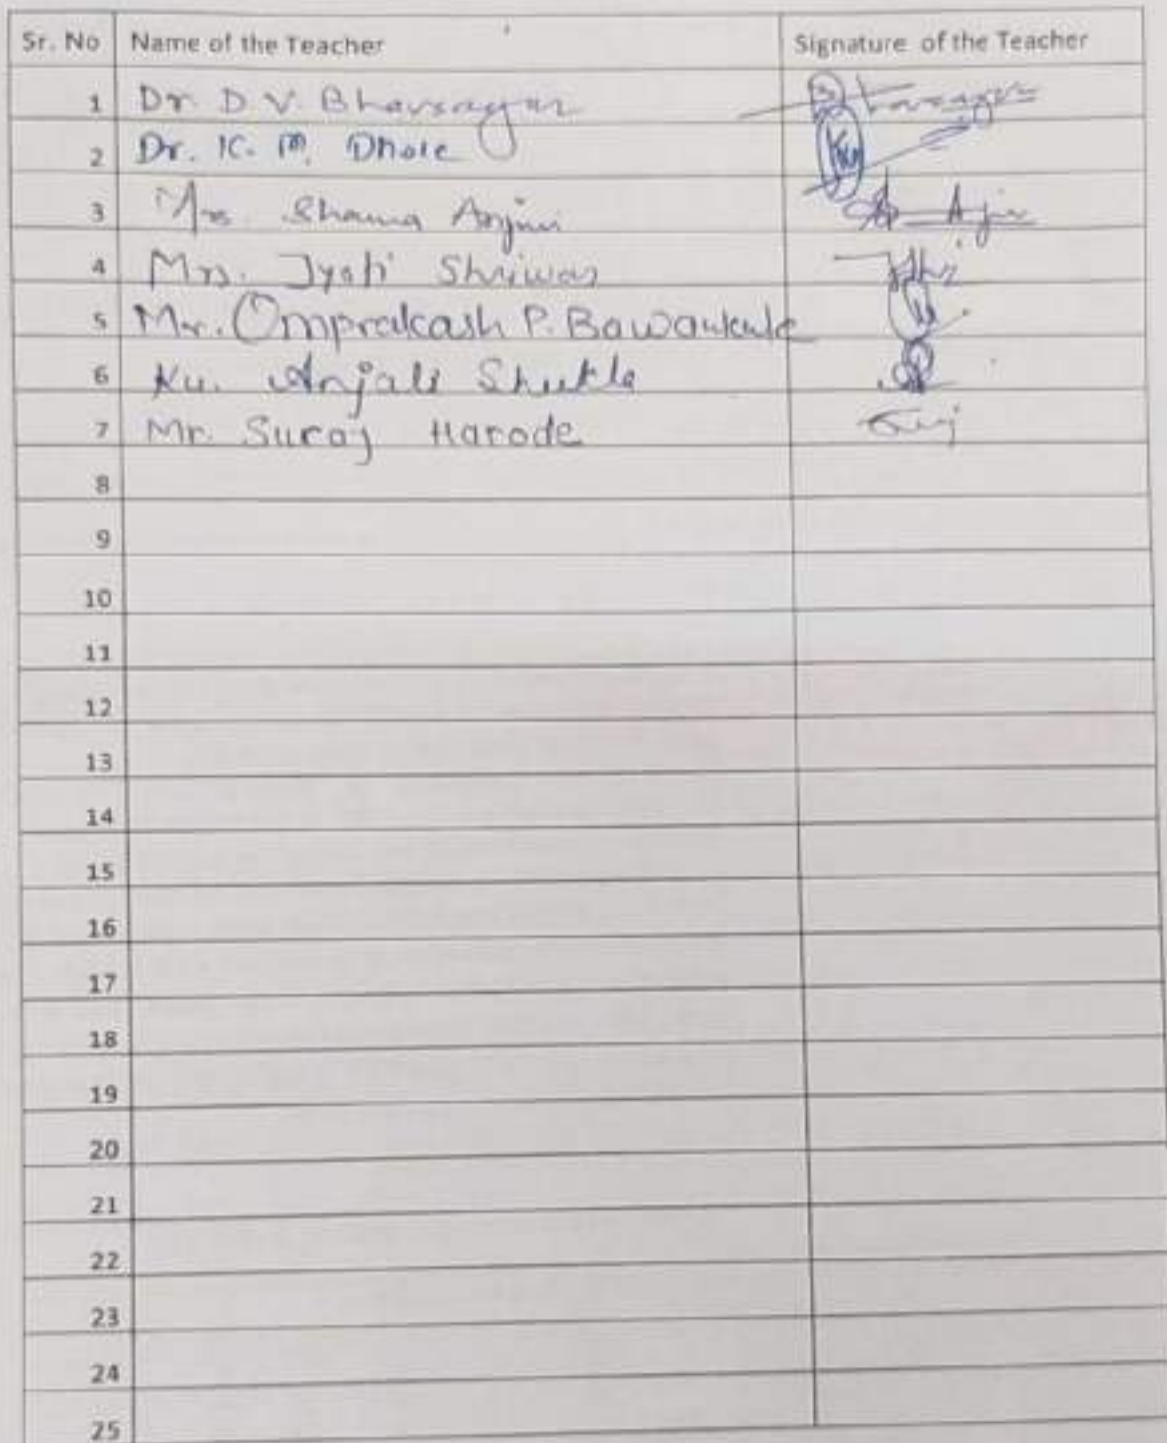 Sr. No Name of the Teacher Signature of the Teacher
1 Dr. D. V. Bhavsagar
2 Dr. K. M. Dhole
3 Mrs Shama Anjum
4 Mrs. Jyoti Shriwas
5 Mr. Omprakash P. Bawankule
6 Ku. Anjali Shukla
7 Mr. Suraj Harode
8
9
10
11
12
13
14
15
16
17
18
19
20
21
22
23
24
25